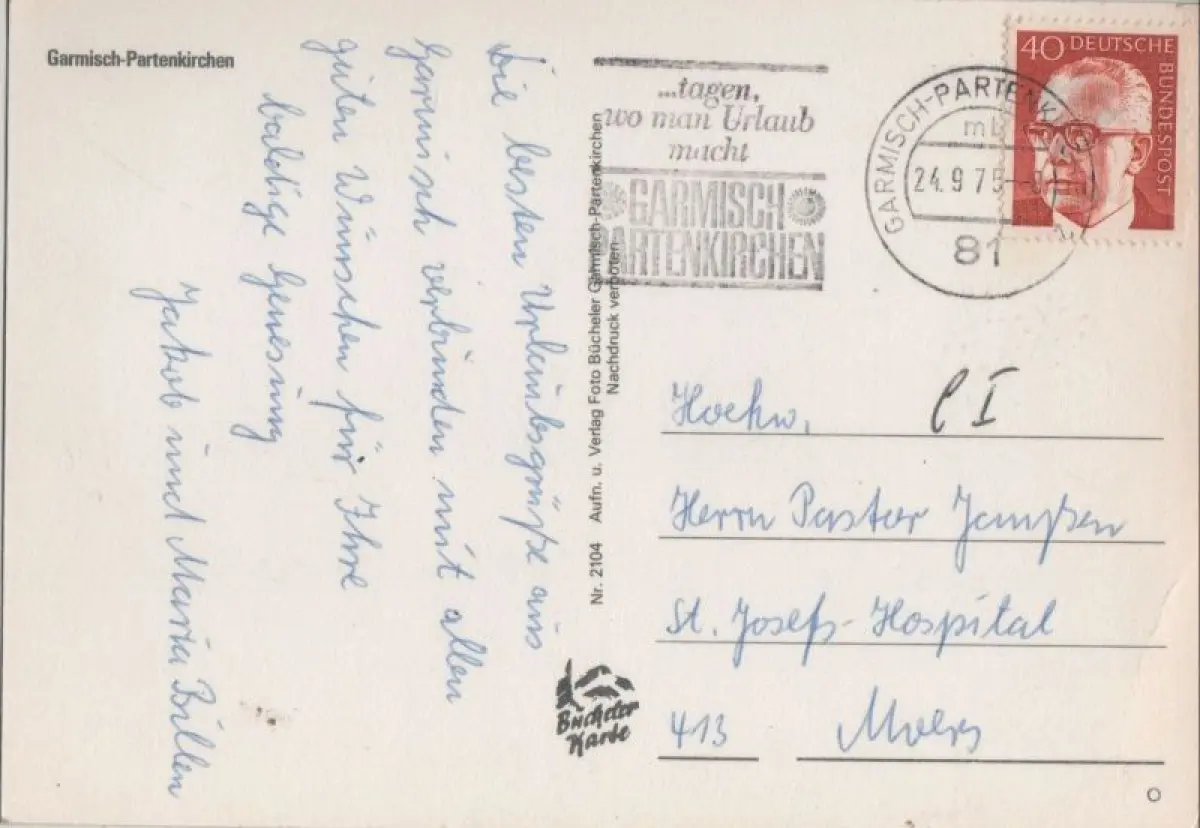 Garmisch-Partenkirchen
Die besten Urlaubsgrüße aus
Garmisch verbinden mit allen
guten Wünschen für Ihre
baldige Genesung
Jakob und Maria Billen
Nr. 2104 Aufn. u. Verlag Foto Bücheler Garmisch-Partenkirchen
Nachdruck verboten
Bücheler
Karte
...tagen,
wo man Urlaub
macht
GARMISCH
PARTENKIRCHEN
GARMISCH-PARTENKI
24.9.75
81
40 DEUTSCHE
BUNDESPOST
Hochw.
C I
Herrn Pastor Janßen
St. Josefs-Hospital
413 Moers